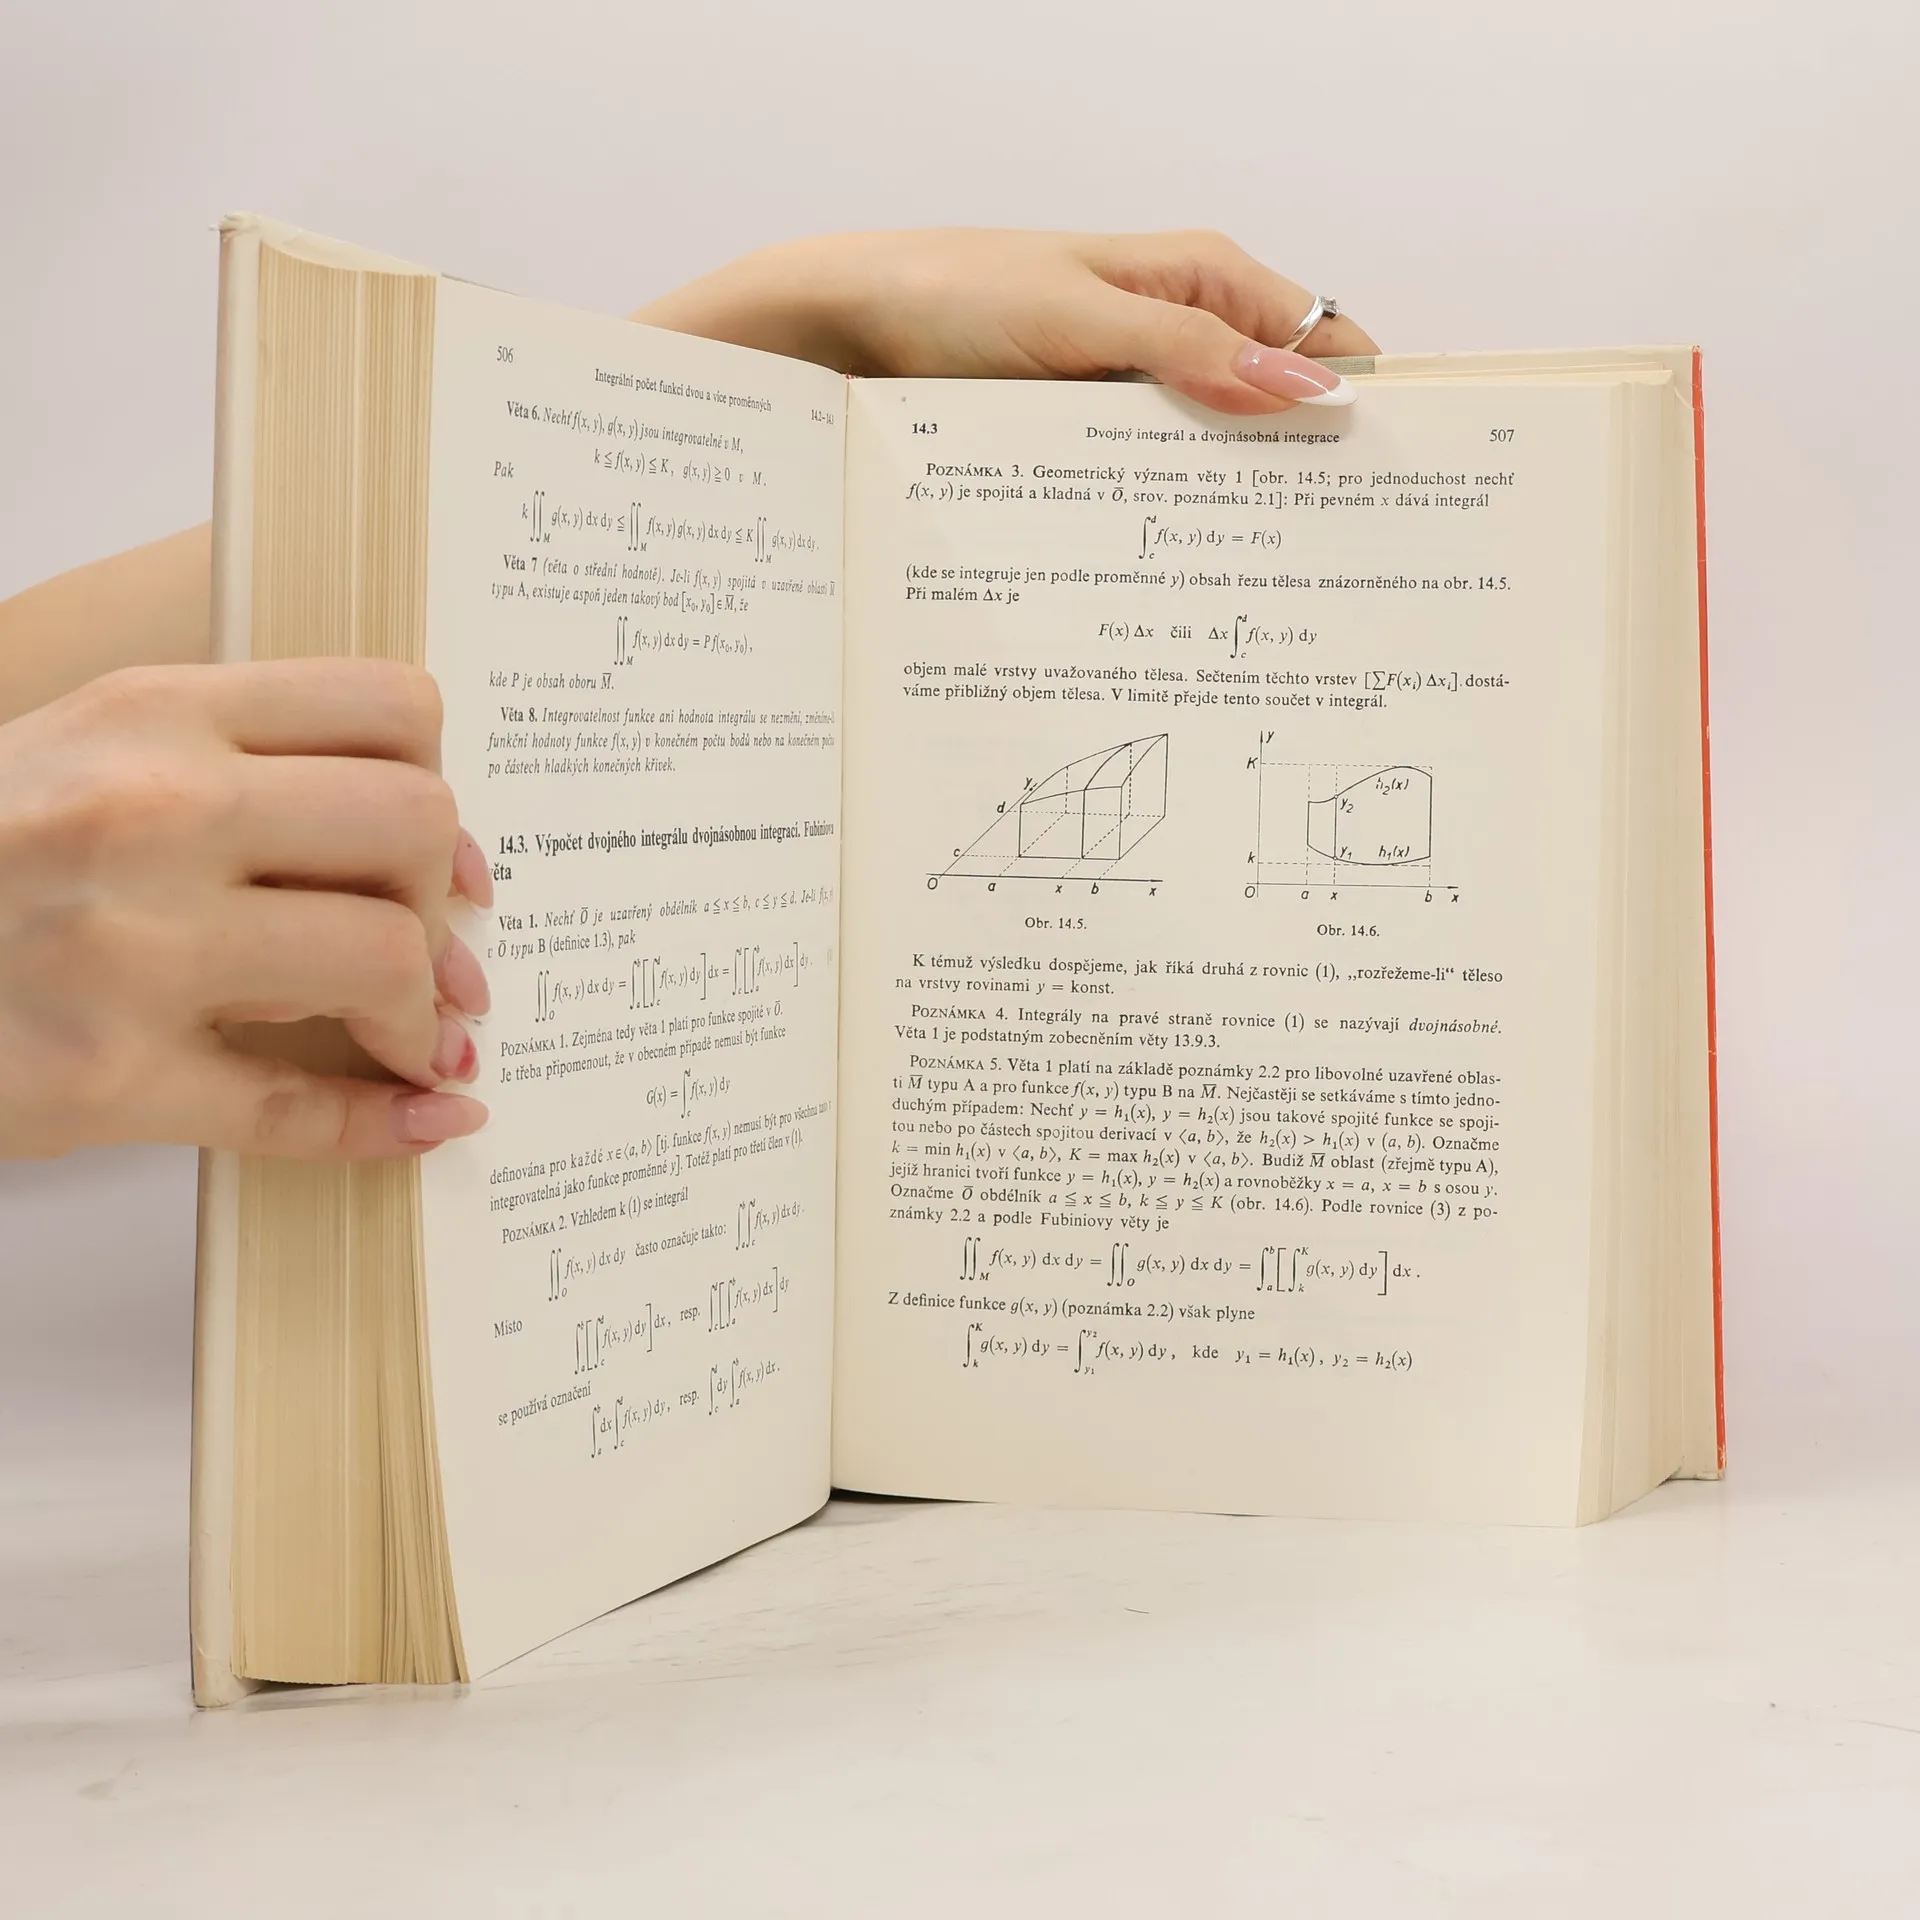 506
Integrální počet funkcí dvou a více proměnných
14.2–14.3
Věta 6. Nechť f(x, y), g(x, y) jsou integrovatelné v M,
k ≦ f(x, y) ≦ K, g(x, y) ≧ 0 v M.
Pak
k∬_M g(x, y) dx dy ≦ ∬_M f(x, y) g(x, y) dx dy ≦ K∬_M g(x, y) dx dy.
Věta 7 (věta o střední hodnotě). Je-li f(x, y) spojitá v uzavřené oblasti M̅
typu A, existuje aspoň jeden takový bod [x₀, y₀] ∈ M̅, že
∬_M f(x, y) dx dy = P f(x₀, y₀),
kde P je obsah oboru M̅.
Věta 8. Integrovatelnost funkce ani hodnota integrálu se nezmění, změníme-li
funkční hodnoty funkce f(x, y) v konečném počtu bodů nebo na konečném počtu
po částech hladkých konečných křivek.
14.3. Výpočet dvojného integrálu dvojnásobnou integrací. Fubiniova
věta
Věta 1. Nechť O̅ je uzavřený obdélník a ≦ x ≦ b, c ≦ y ≦ d. Je-li f(x, y)
v O̅ typu B (definice 1.3), pak
∬_O f(x, y) dx dy = ∫_a^b [∫_c^d f(x, y) dy] dx = ∫_c^d [∫_a^b f(x, y) dx] dy.
POZNÁMKA 1. Zejména tedy věta 1 platí pro funkce spojité v O̅.
Je třeba připomenout, že v obecném případě nemusí být funkce
G(x) = ∫_c^d f(x, y) dy
definována pro každé x ∈ ⟨a, b⟩ [tj. funkce f(x, y) nemusí být pro všechna tato x
integrovatelná jako funkce proměnné y]. Totéž platí pro třetí člen v (1).
POZNÁMKA 2. Vzhledem k (1) se integrál
∬_O f(x, y) dx dy často označuje takto: ∫_a^b ∫_c^d f(x, y) dx dy.
Místo
∫_a^b [∫_c^d f(x, y) dy] dx, resp. ∫_c^d [∫_a^b f(x, y) dx] dy
se používá označení
∫_a^b dx ∫_c^d f(x, y) dy, resp. ∫_c^d dy ∫_a^b f(x, y) dx.
14.3
Dvojný integrál a dvojnásobná integrace
507
POZNÁMKA 3. Geometrický význam věty 1 [obr. 14.5; pro jednoduchost nechť
f(x, y) je spojitá a kladná v O̅, srov. poznámku 2.1]: Při pevném x dává integrál
∫_c^d f(x, y) dy = F(x)
(kde se integruje jen podle proměnné y) obsah řezu tělesa znázorněného na obr. 14.5.
Při malém Δx je
F(x) Δx čili Δx ∫_c^d f(x, y) dy
objem malé vrstvy uvažovaného tělesa. Sečtením těchto vrstev [∑F(xᵢ) Δxᵢ] dostá-
váme přibližný objem tělesa. V limitě přejde tento součet v integrál.
y
d
c
O
a
x
b
x
Obr. 14.5.
y
K
h₂(x)
y₂
k
y₁
h₁(x)
O
a
x
b
x
Obr. 14.6.
K témuž výsledku dospějeme, jak říká druhá z rovnic (1), „rozřežeme-li“ těleso
na vrstvy rovinami y = konst.
POZNÁMKA 4. Integrály na pravé straně rovnice (1) se nazývají dvojnásobné.
Věta 1 je podstatným zobecněním věty 13.9.3.
POZNÁMKA 5. Věta 1 platí na základě poznámky 2.2 pro libovolné uzavřené oblas-
ti M̅ typu A a pro funkce f(x, y) typu B na M̅. Nejčastěji se setkáváme s tímto jedno-
duchým případem: Nechť y = h₁(x), y = h₂(x) jsou takové spojité funkce se spoji-
tou nebo po částech spojitou derivací v ⟨a, b⟩, že h₂(x) > h₁(x) v (a, b). Označme
k = min h₁(x) v ⟨a, b⟩, K = max h₂(x) v ⟨a, b⟩. Budiž M̅ oblast (zřejmě typu A),
jejíž hranici tvoří funkce y = h₁(x), y = h₂(x) a rovnoběžky x = a, x = b s osou y.
Označme O̅ obdélník a ≦ x ≦ b, k ≦ y ≦ K (obr. 14.6). Podle rovnice (3) z po-
známky 2.2 a podle Fubiniovy věty je
∬_M f(x, y) dx dy = ∬_O g(x, y) dx dy = ∫_a^b [∫_k^K g(x, y) dy] dx.
Z definice funkce g(x, y) (poznámka 2.2) však plyne
∫_k^K g(x, y) dy = ∫_{y₁}^{y₂} f(x, y) dy, kde y₁ = h₁(x), y₂ = h₂(x)